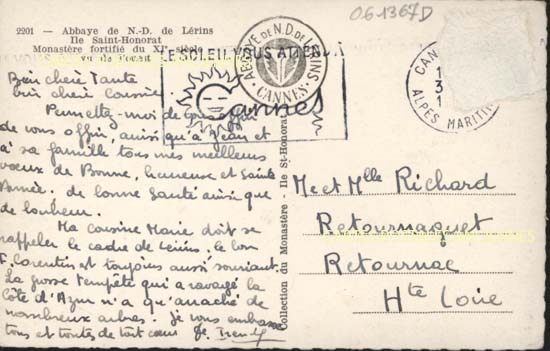 061367D
2201 — Abbaye de N.-D. de Lérins
Ile Saint-Honorat
Monastère fortifié du XIe siècle
vu de Ponant
LE SOLEIL VOUS ATTEND A
Cannes
ABBAYE DE N.D. DE LÉRINS
CANNES
CAN
ALPES MARITIM
Bien chère Tante
bien chère Cousine.
Permettez-moi de
de vous offrir, ainsi qu'à Jean et
à sa famille tous mes meilleurs
voeux de Bonne, heureuse et Sainte
Année, de bonne Santé ainsi que
de bonheur.
Ma cousine Marie doit se
rappeler le cadre de Lérins. Le bon
F. Corentin est toujours aussi souriant.
La grosse tempête qui a ravagé la
Côte d'Azur n'a qu'arraché de
nombreux arbres. Je vous embrasse
tous et toutes de tout coeur
Collection du Monastère - Ile St-Honorat
Me et Mlle Richard
Retournaguet
Retournac
Hte Loire